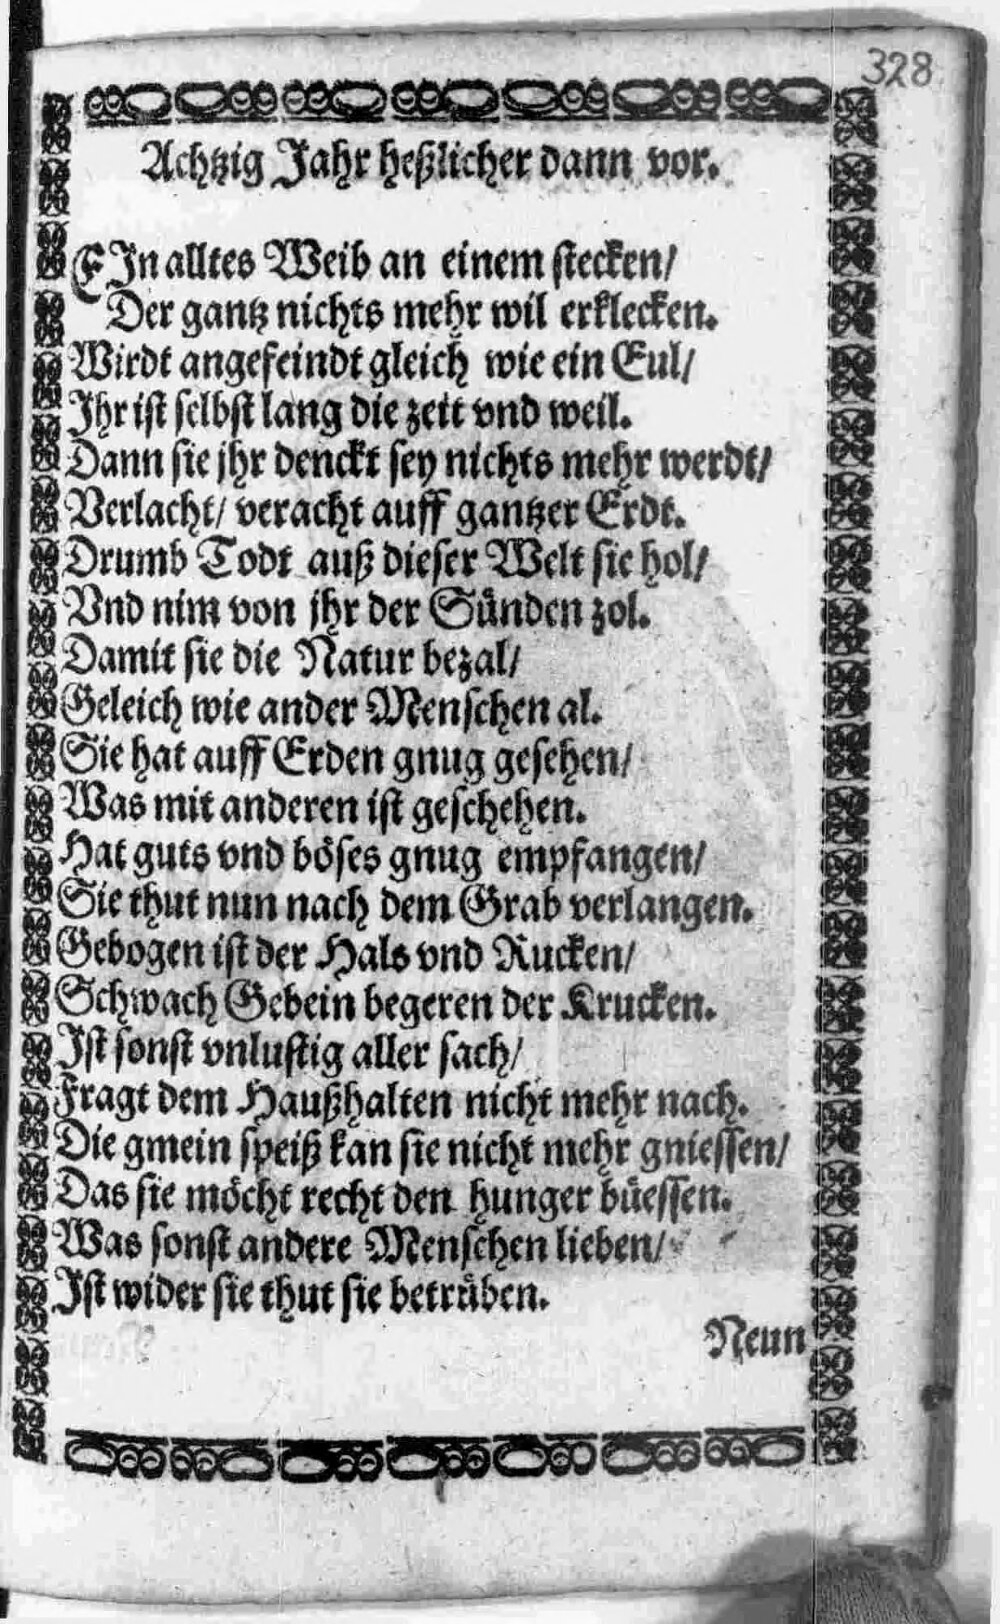 328
Achtzig Jahr heßlicher dann vor.
EIn alltes Weib an einem stecken/
Der gantz nichts mehr wil erklecken.
Wirdt angefeindt gleich wie ein Eul/
Ihr ist selbst lang die zeit vnd weil.
Dann sie jhr denckt sey nichts mehr werdt/
Verlacht/ veracht auff gantzer Erdt.
Drumb Todt auß dieser Welt sie hol/
Vnd nim von jhr der Sünden zol.
Damit sie die Natur bezal/
Geleich wie ander Menschen al.
Sie hat auff Erden gnug gesehen/
Was mit anderen ist geschehen.
Hat guts vnd böses gnug empfangen/
Sie thut nun nach dem Grab verlangen.
Gebogen ist der Hals vnd Rucken/
Schwach Gebein begeren der Krucken.
Ist sonst vnlustig aller sach/
Fragt dem Haußhalten nicht mehr nach.
Die gmein speiß kan sie nicht mehr gniessen/
Das sie möcht recht den hunger büessen.
Was sonst andere Menschen lieben/
Ist wider sie thut sie betrüben.
Neun